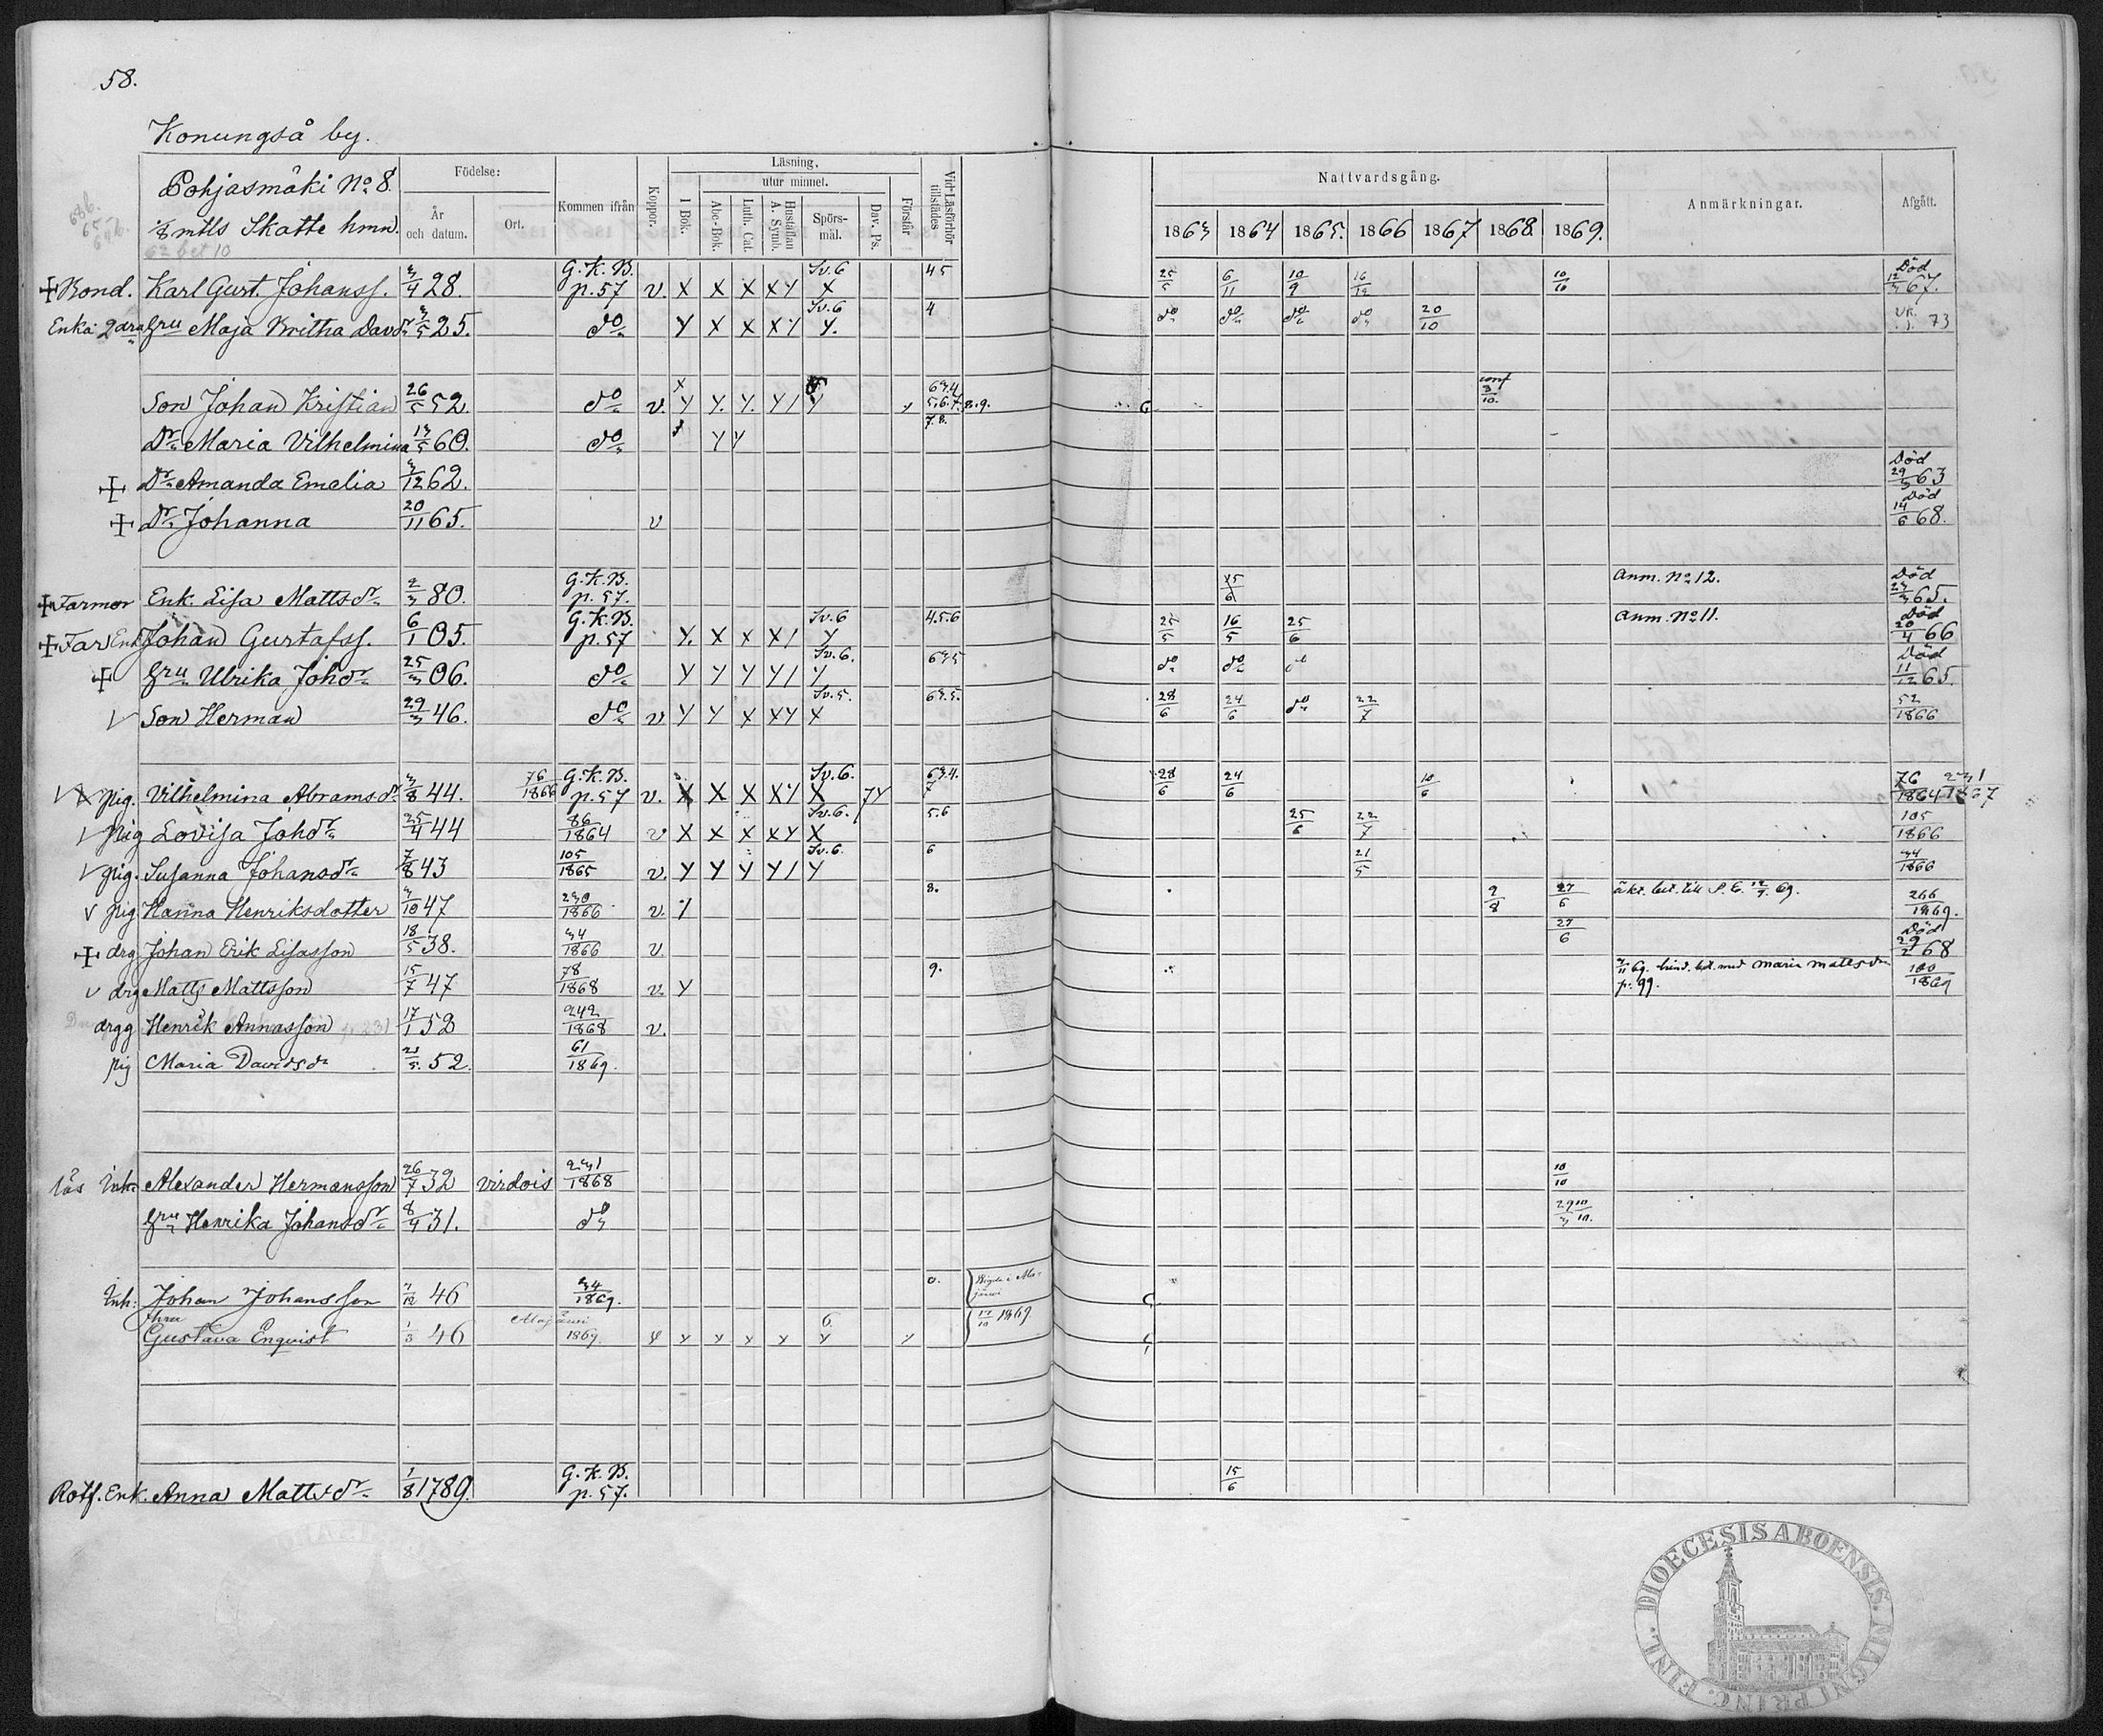 58.
Konungså by.
Pohjasmäki No 8.
1/8 mtls Skatte hmn.
Födelse:
År och datum.
Ort.
Kommen ifrån
Koppor.
Läsning.
utur minnet.
I Bok.
Abc-Bok.
Luth. Cat.
Hustaflan A. Symb.
Spörs-mål.
Dav. Ps.
Förstår
Vid Läsförhör tillstädes
Nattvardsgång.
1863 1864 1865. 1866 1867 1868 1869.
Anmärkningar.
Afgått.
Bond. Karl Gust. Johanss. 3/4 28. G.K.B. p.57 v. X X X XY Sv.6 X 45 25/5 6/11 10/9 16/12 10/10 Död 12/3 67.
Enka 2dra Hru Maja Britha Davdr 3/5 25. do Y X X XY Sv.6 Y. 4 do do do do 20/10 73
Son Johan Kristian 26/5 52. do v. Y Y. Y. Y/ Y 634 5.6.7. 8.9. conf 3/10.
Dr Maria Vilhelmina 13/5 60. do YY 7.8.
Dr Amanda Emelia 3/12 62. Död 29/3 63
Dr Johanna 20/11 65. v Död 14/6 68.
Farmor Enk. Lisa Mattsdr 2/3 80. G.K.B. p.57. 15/6 Anm. No 12. Död 23/3 65.
Far Enk Johan Gustafss. 6/1 05. G.K.B. p.57 Y. X X X/ Sv.6 Y 4.5.6 25/5 16/5 25/6 Anm. No 11. Död 20/4 66
Hru Ulrika Johdr 25/3 06. do Y Y Y Y/ Sv.6. Y 635 do do do Död 11/12 65.
Son Herman 29/3 46. do v. Y Y X XY Sv.5. X 63.5. 28/6 24/6 do 22/7 52/1866
pig. Vilhelmina Abramsdr 3/8 44. 76/1866 G.K.B. p.57 v. X X X X/ Sv.6. X 7Y 63.4. 7 28/6 24/6 10/6 76/1864 231/1867
pig Lovisa Johdr 25/4 44 86/1864 v X X X XY Sv.6. X 5.6 25/6 22/7 105/1866
pig. Susanna Johansdr 7/8 43 105/1865 v. Y Y Y Y/ Sv.6. Y 6 21/5 34/1866
pig Hanna Henriksdotter 3/10 47 230/1866 v. 8. 9/8 27/6 äkt. bet. till S. E. 12/9. 69. 266/1869.
drg Johan Erik Lisasson 18/5 38. 34/1866 v. 27/6 Död 29/2 68
drg Matts Mattsson 15/7 47 78/1868 v. Y 9. 69. med Maria Mattsdr p. 99. 180/1869
drgg Henrik Annasson 17/1 52 242/1868 v.
pig Maria Davidsdr 52. 61/1869.
Inh. Alexander Hermansson 26/7 32 Virdois 231/1868 10/10
Hru Henrika Johansdr 8/4 31. do 29/3 10/10.
Inh: Johan Johansson 46 34/1869. 0. Wigda i
Hru Gustava Enqvist 1/3 46 1869. Y Y Y Y 6 Y Y 17/10 1869
Rotf. Enk. Anna Mattsdr 1/8 1789. G.K.B. p.57. 15/6
DIOECESIS ABOENSIS. MAGNI PRINC. FINL.